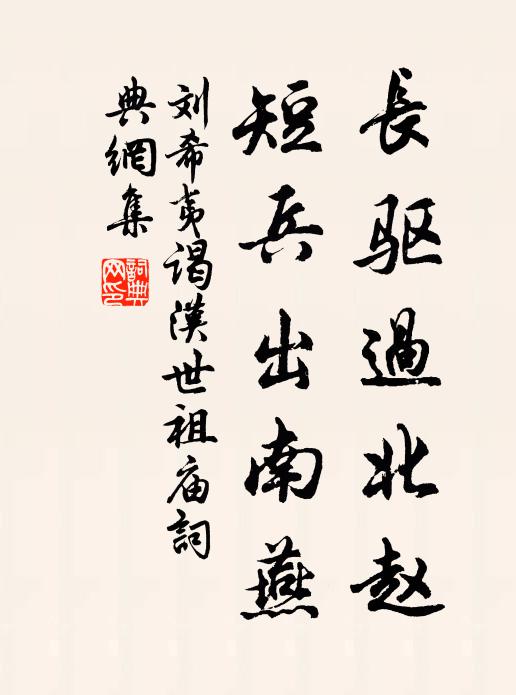 長驱過北赵
短兵出南燕
刘希夷谒漢世祖庙詞
典網集
詞典网印